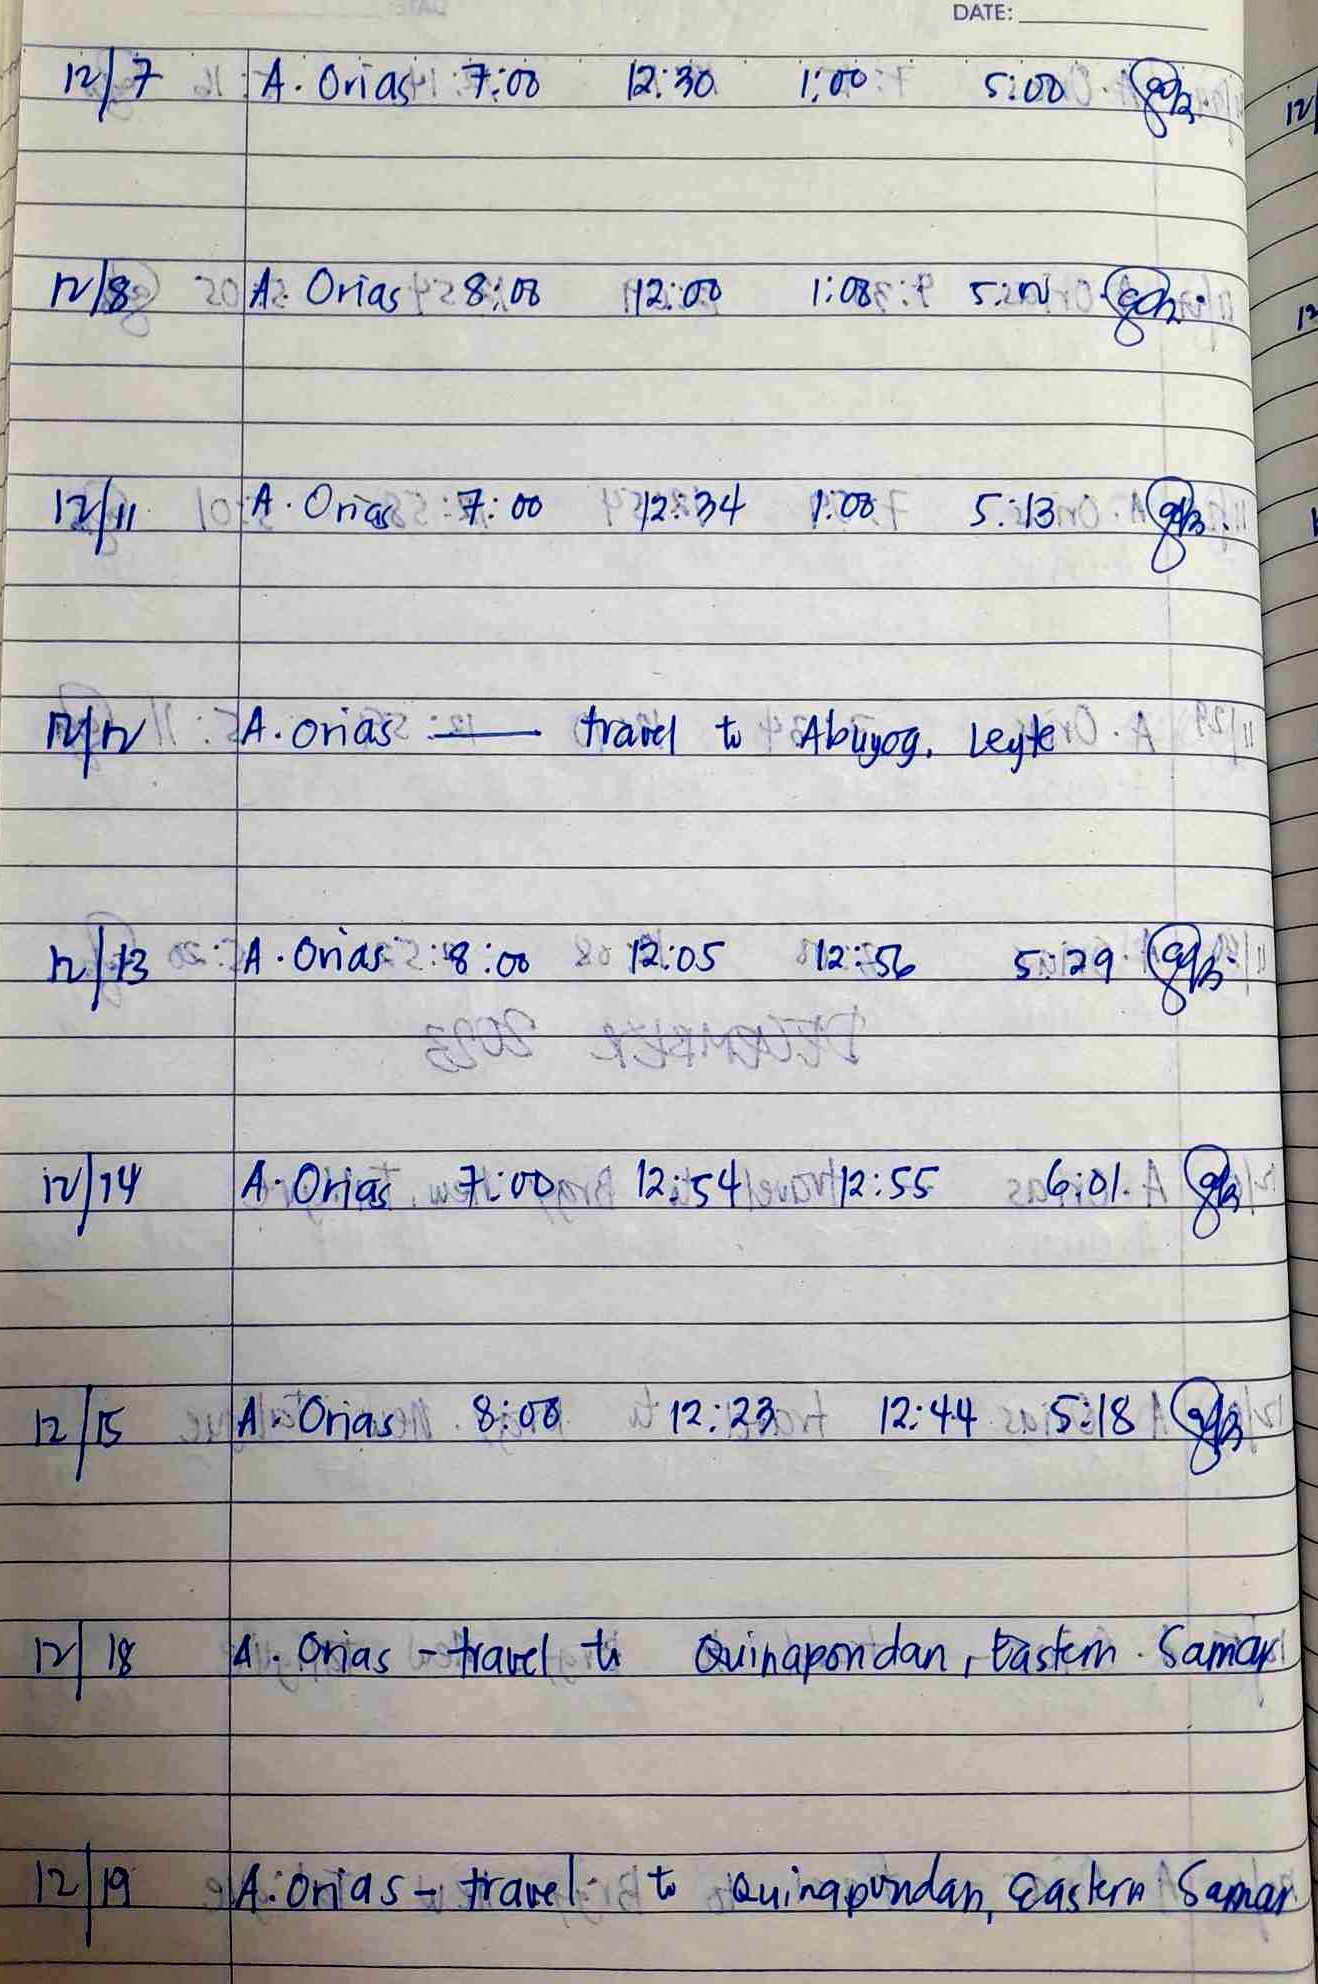 DATE:
12/7 A. Orias 7:00 12:30 1:00 5:00
12/8 A. Orias 8:00 12:00 1:00 5:12
12/11 A. Orias 7:00 12:34 1:00 5:13
12/12 A. Orias — travel to Abuyog, Leyte
12/13 A. Orias 8:00 12:05 12:56 5:29
12/14 A. Orias 7:00 12:54 12:55 6:01
12/15 A. Orias 8:00 12:23 12:44 5:18
12/18 A. Orias - travel to Quinapondan, Eastern Samar
12/19 A. Orias - travel to Quinapundan, Eastern Samar